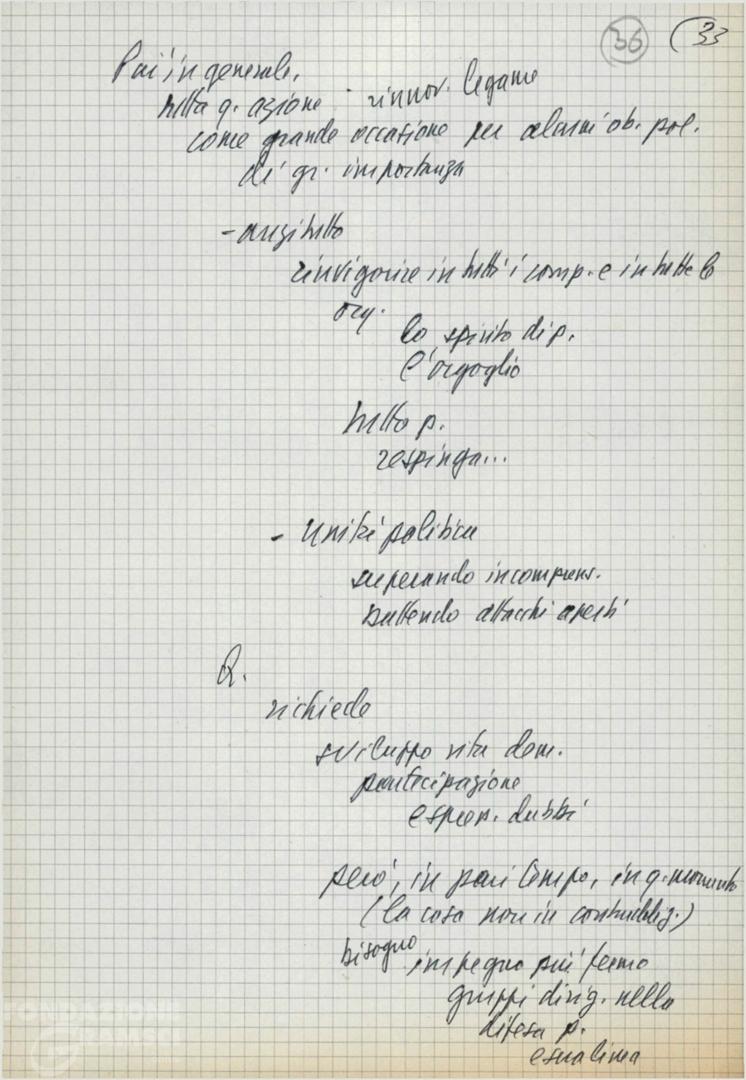 36 (33
Più in generale,
nella q. azione rinnov. legame
come grande occasione per alcuni ob. pol.
di gr. importanza
- anzitutto
rinvigorire in tutti i comp. e in tutte le
org.
lo spirito di p.
l'orgoglio
tutto p.
respinga...
- unità politica
superando incompens.
battendo attacchi aperti
Q.
richiede
sviluppo vita dem.
partecipazione
espress. dubbi
però, in pari tempo, in q. momento
(la cosa non in contraddiz.)
bisogno impegno più fermo
gruppi dirig. nella
difesa p.
e sua linea
FONDAZIONE
GRAMSCI